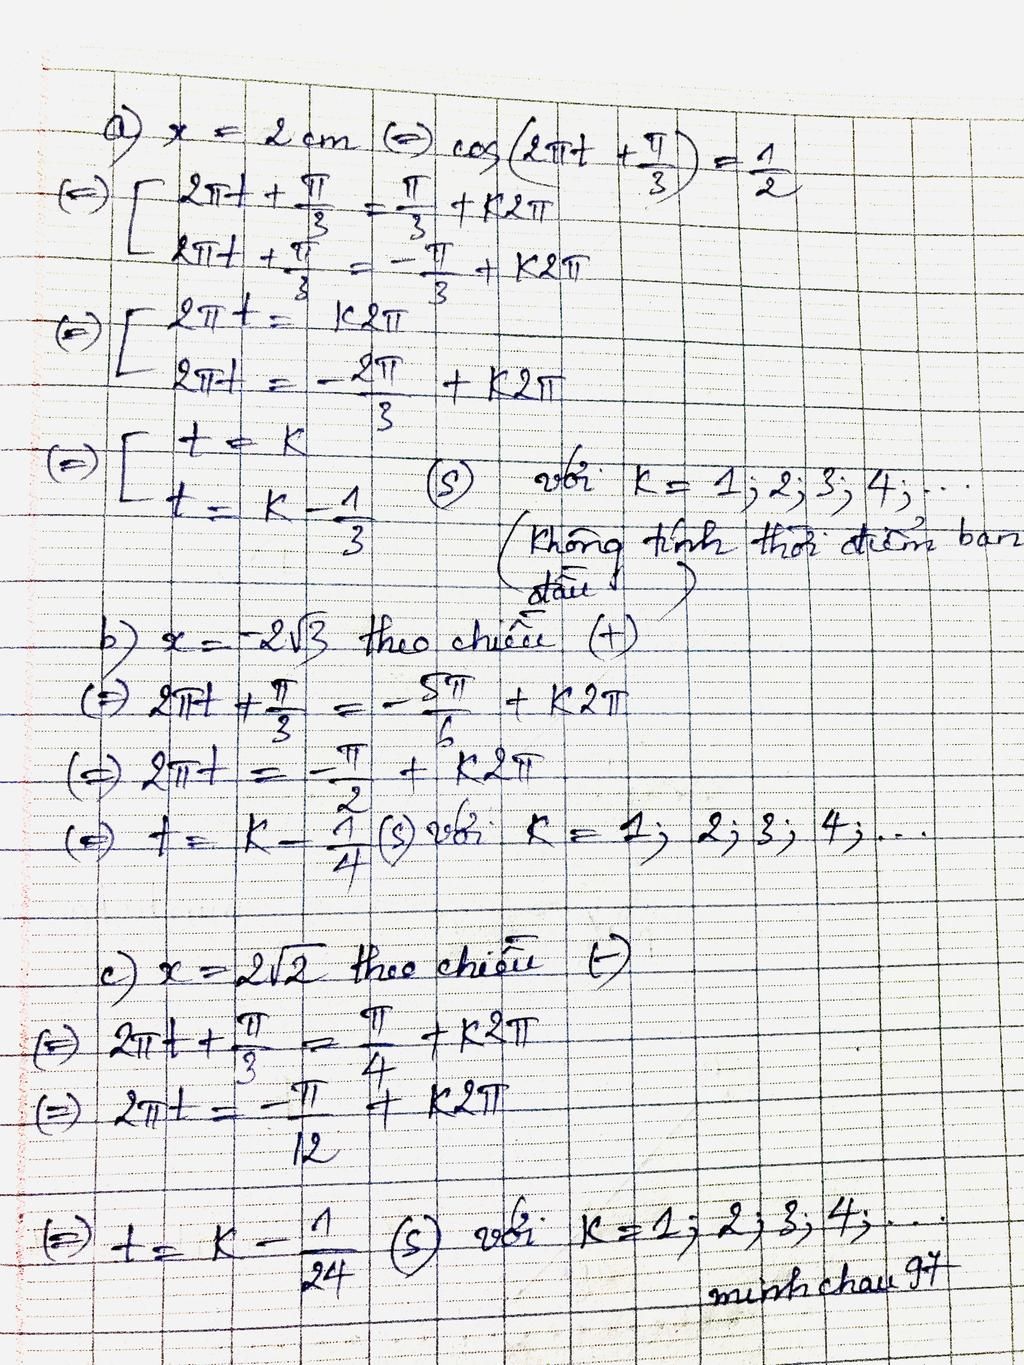 a) x = 2 cm (=) cos(2πt + π/3) = 1/2
(=) [ 2πt + π/3 = π/3 + K2π
2πt + π/3 = -π/3 + K2π
(=) [ 2πt = K2π
2πt = -2π/3 + K2π
(=) [ t = K
t = K - 1/3 (s) với K = 1; 2; 3; 4; ...
(không tính thời điểm ban
đầu)
b) x = -2√3 theo chiều (+)
(=) 2πt + π/3 = -5π/6 + K2π
(=) 2πt = -π/2 + K2π
(=) t = K - 1/4 (s) với K = 1; 2; 3; 4; ...
c) x = 2√2 theo chiều (-)
(=) 2πt + π/3 = π/4 + K2π
(=) 2πt = -π/12 + K2π
(=) t = K - 1/24 (s) với K = 1; 2; 3; 4; ...
minh chau 97